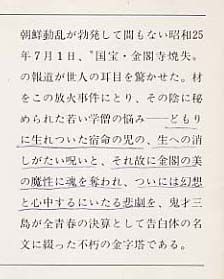 朝鮮動乱が勃発して間もない昭和25
年７月１日、〝国宝・金閣寺焼失〟
の報道が世人の耳目を驚かせた。材
をこの放火事件にとり、その陰に秘
められた若い学僧の悩み――どもり
に生れついた宿命の児の、生への消
しがたい呪いと、それ故に金閣の美
の魔性に魂を奪われ、ついには幻想
と心中するにいたる悲劇を、鬼才三
島が全青春の決算として告白体の名
文に綴った不朽の金字塔である。